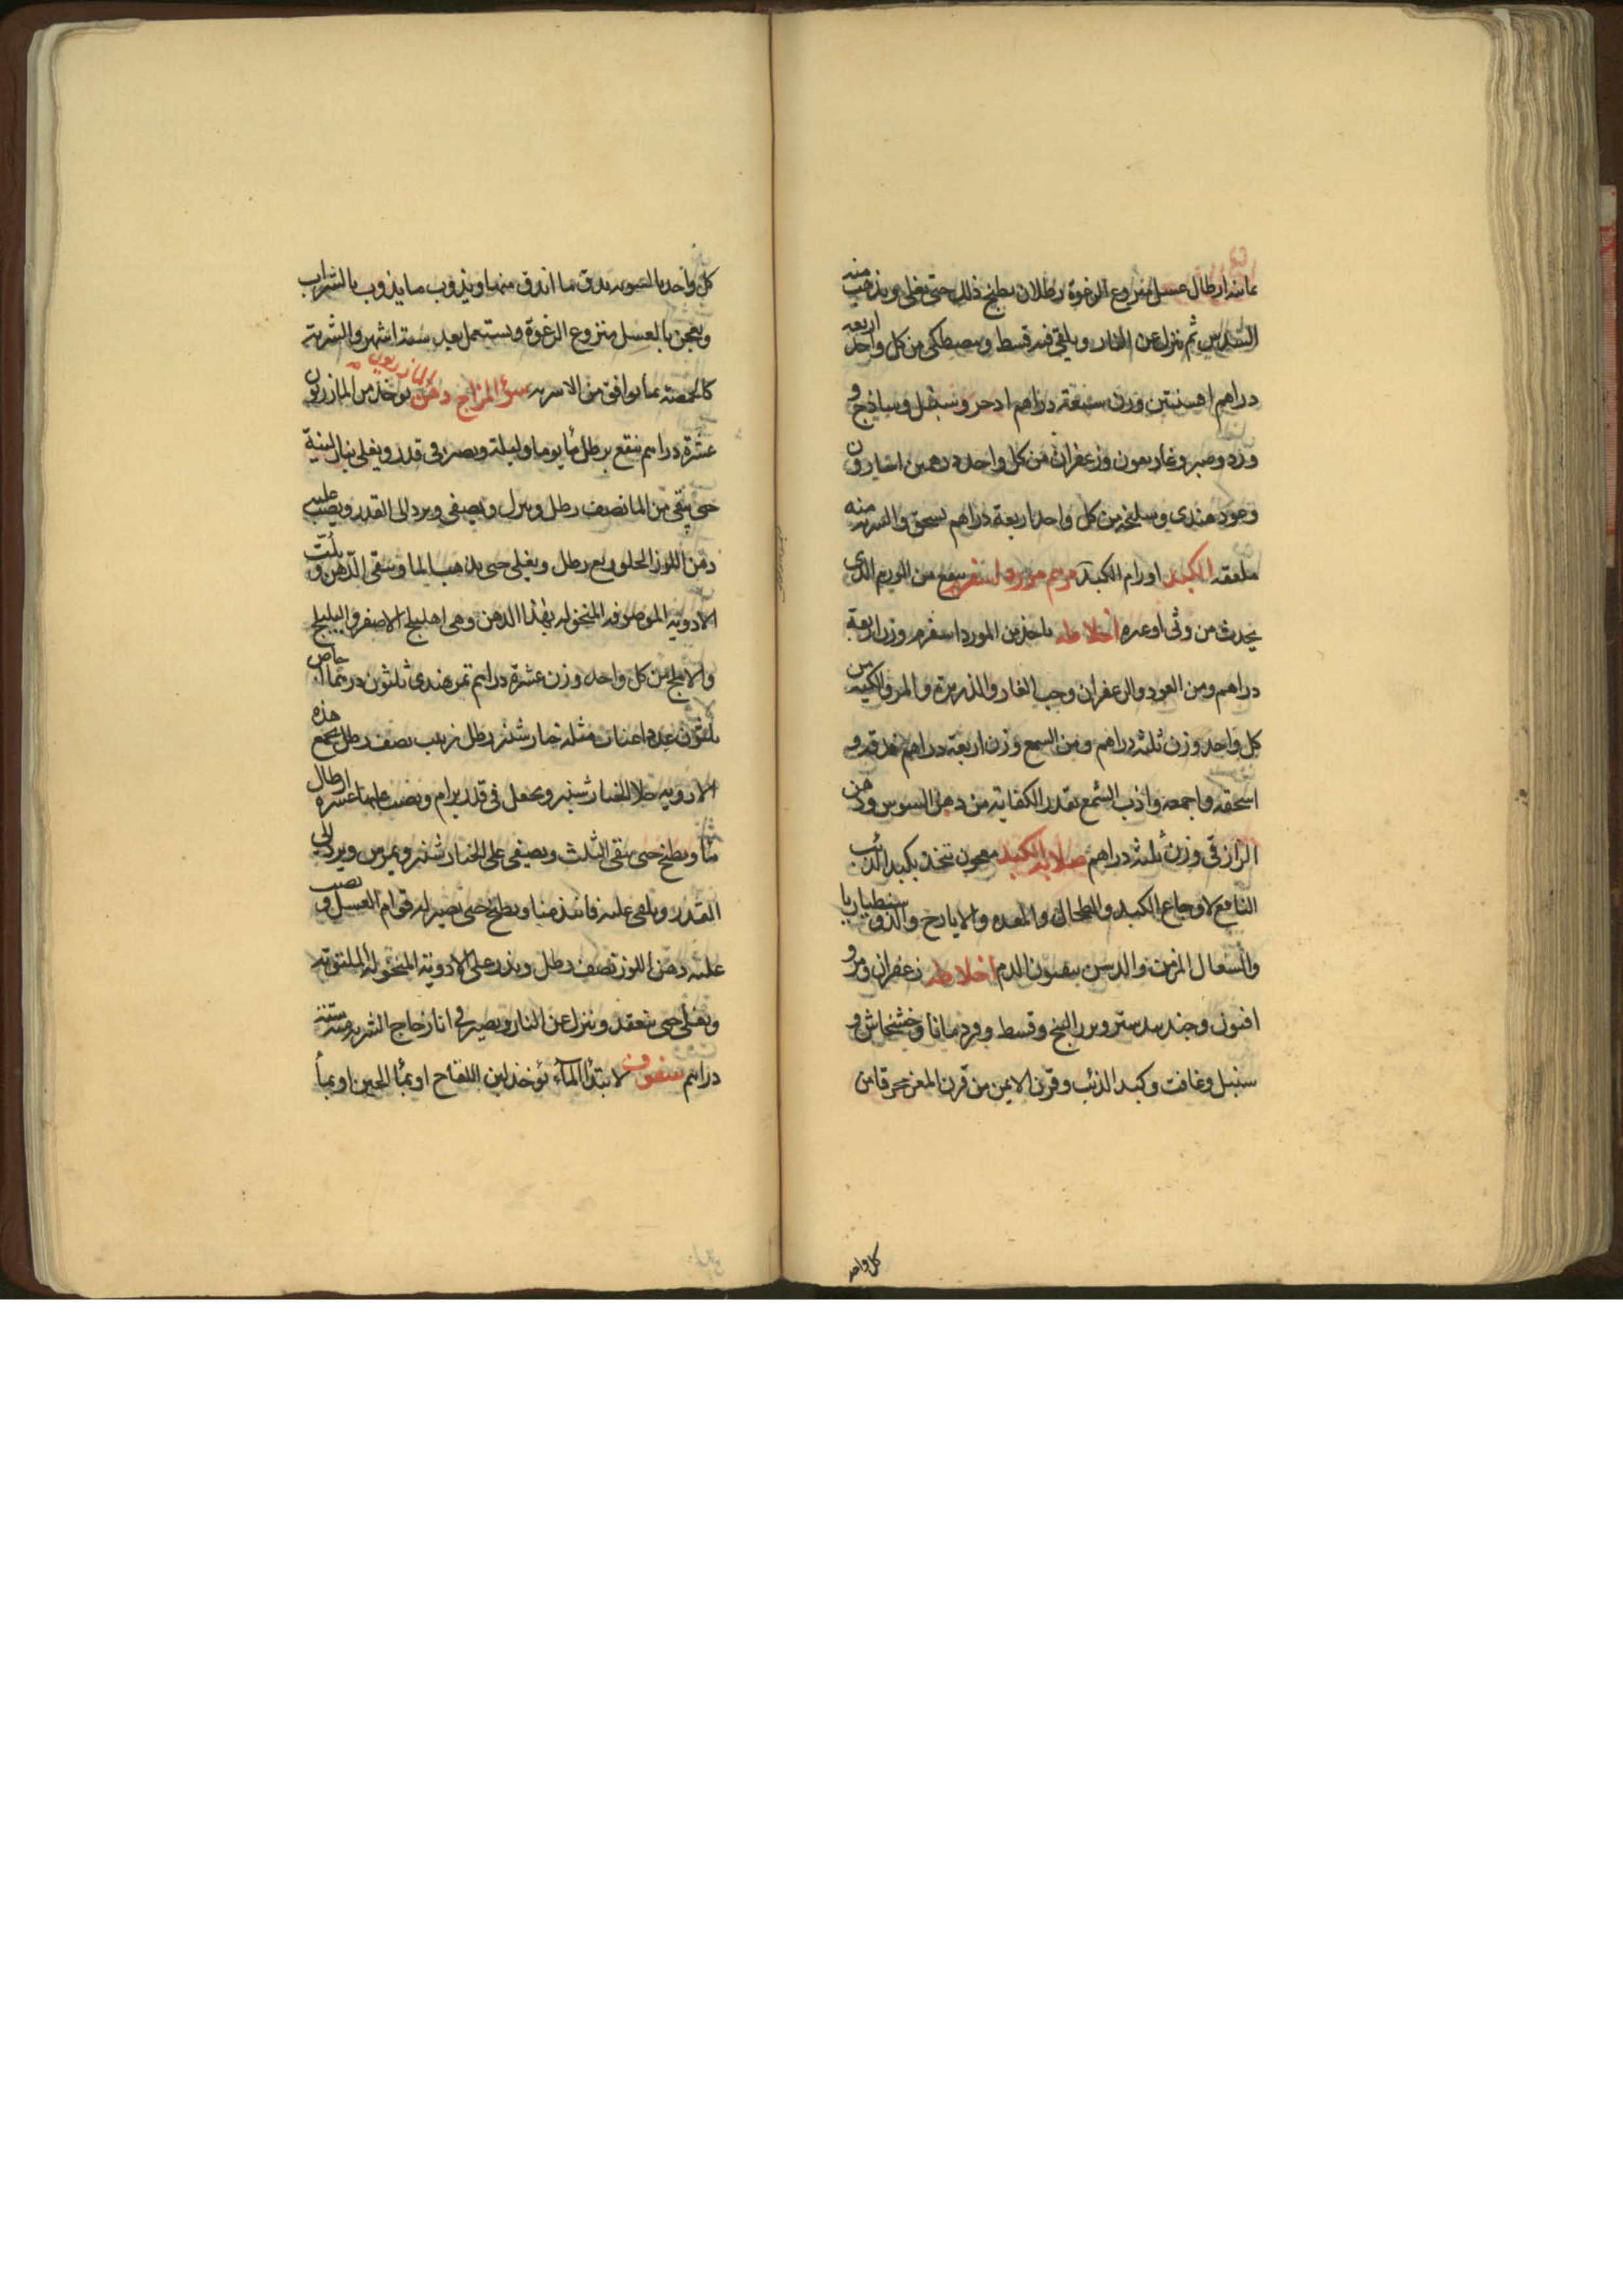 ثمانية ارطال عسل منزوع الرغوة رطلان يطبخ ذلك حتى يغلي ويذهب منه
السدس ثم ينزل عن النار ويلقى فيه قسط ومصطكى من كل واحد اربعة
دراهم افسنتين وزن سبعة دراهم اذخر وسنبل وساذج و
ورد وصبر وغاريقون وزعفران من كل واحد درهمين اسارون
وعود هندي وسليخه من كل واحد اربعة دراهم يسحق والشربه منه
ملعقه الكبد اورام الكبد مرهم مورد اسفرم ينفع من الورم الذي
يحدث من وثى او غيره اخلاطه ياخذ من المورد اسفرم وزن اربعة
دراهم ومن العود والزعفران وحب الغار والذريرة والمر والكيه من
كل واحد وزن ثلثه دراهم ومن الشمع وزن اربعة دراهم فدقه و
اسحقه واجمعه واذب الشمع بقدر الكفاية من دهن السوسن ودهن
الرازقي وزن ثلثه دراهم صلابه الكبد معجون يتخذ بكبد الذئب
النافع لاوجاع الكبد والطحال والمعده والايارج والذوسنطياريا
والسعال المزمن والذين ينفثون الدم اخلاطه زعفران ومر و
افيون وجندبيدستر وبزر البنج وقسط وقردمانا وخشخاش و
سنبل وغافت وكبد الذئب وقرن الايمن من قرن المعز محرقا من
كل واحد
كل واحد بالسويه يدق ما اندق منها ويذوب ما يذوب بالشراب
ويعجن بالعسل منزوع الرغوة ويستعمل بعد ستة اشهر والشربة
كالحمصة بما يوافق من الاشربه سؤ المزاج دهن المازريون يوخذ من المازريون
عشرة دراهم ينقع برطل ماً يوما وليلة ويصير في قدر ويغلى بنار لينة
حتى يبقى من الما نصف رطل وينزل ويصفى ويرد الى القدر ويصب عليه
دهن اللوز الحلو ربع رطل ويغلى حتى يذهب الما ويبقى الدهن ويلت
الادوية الموصوفه المنخوله بهذا الدهن وهي اهليلج الاصفر والبليلج
والاملج من كل واحد وزن عشرة دراهم تمر هندي ثلثون درهما اجاص
ثلثون عددا عناب مثله خيار شنبر رطل زبيب نصف رطل يجمع هذه
الادويه خلا الخيار شنبر ويجعل في قدر برام ويصب عليها عشره ارطال
ماً ويطبخ حتى يبقى الثلث ويصفى على الخيار شنبر ويمرس ويرد الى
القدر ويلقى عليه فانيذ منا ويطبخ حتى يصير له قوام العسل ويصب
عليه دهن اللوز نصف رطل ويذر على الادوية المنخولة الملتوتة
ويغلى حتى ينعقد وينزل عن النار ويصير في انا زجاج الشربه منه ستة
دراهم سفوف لابتدا المآء يؤخذ لبن اللقاح او بمأ الجبن او بمأ